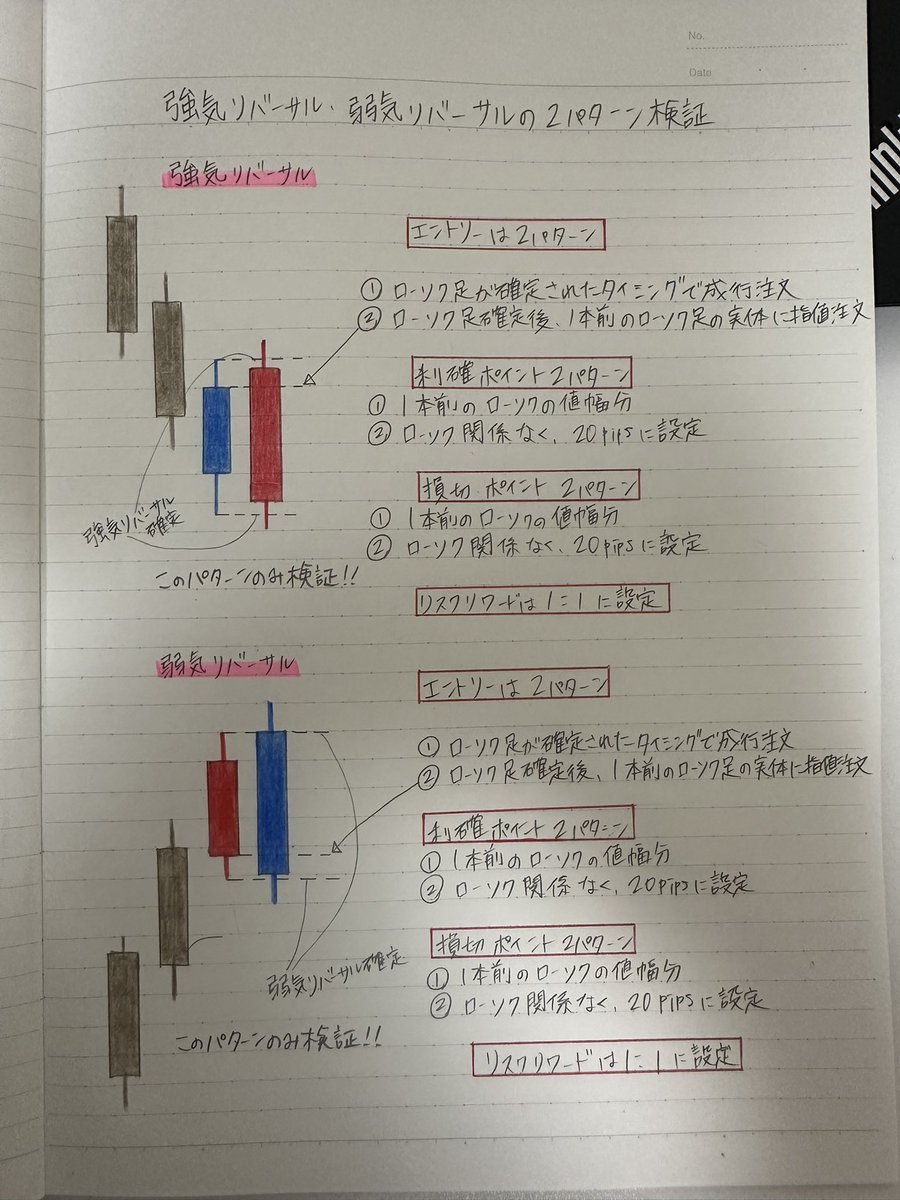 No.
Date
強気リバーサル・弱気リバーサルの2パターン検証
強気リバーサル
エントリーは2パターン
① ローソク足が確定されたタイミングで成行注文
② ローソク足確定後、1本前のローソク足の実体に指値注文
利確ポイント2パターン
① 1本前のローソクの値幅分
② ローソク関係なく、20pipsに設定
損切ポイント2パターン
① 1本前のローソクの値幅分
② ローソク関係なく、20pipsに設定
強気リバーサル
確定
このパターンのみ検証!!
リスクリワードは1:1に設定
弱気リバーサル
エントリーは2パターン
① ローソク足が確定されたタイミングで成行注文
② ローソク足確定後、1本前のローソク足の実体に指値注文
利確ポイント2パターン
① 1本前のローソクの値幅分
② ローソク関係なく、20pipsに設定
損切ポイント2パターン
① 1本前のローソクの値幅分
② ローソク関係なく、20pipsに設定
弱気リバーサル確定
このパターンのみ検証!!
リスクリワードは1:1に設定